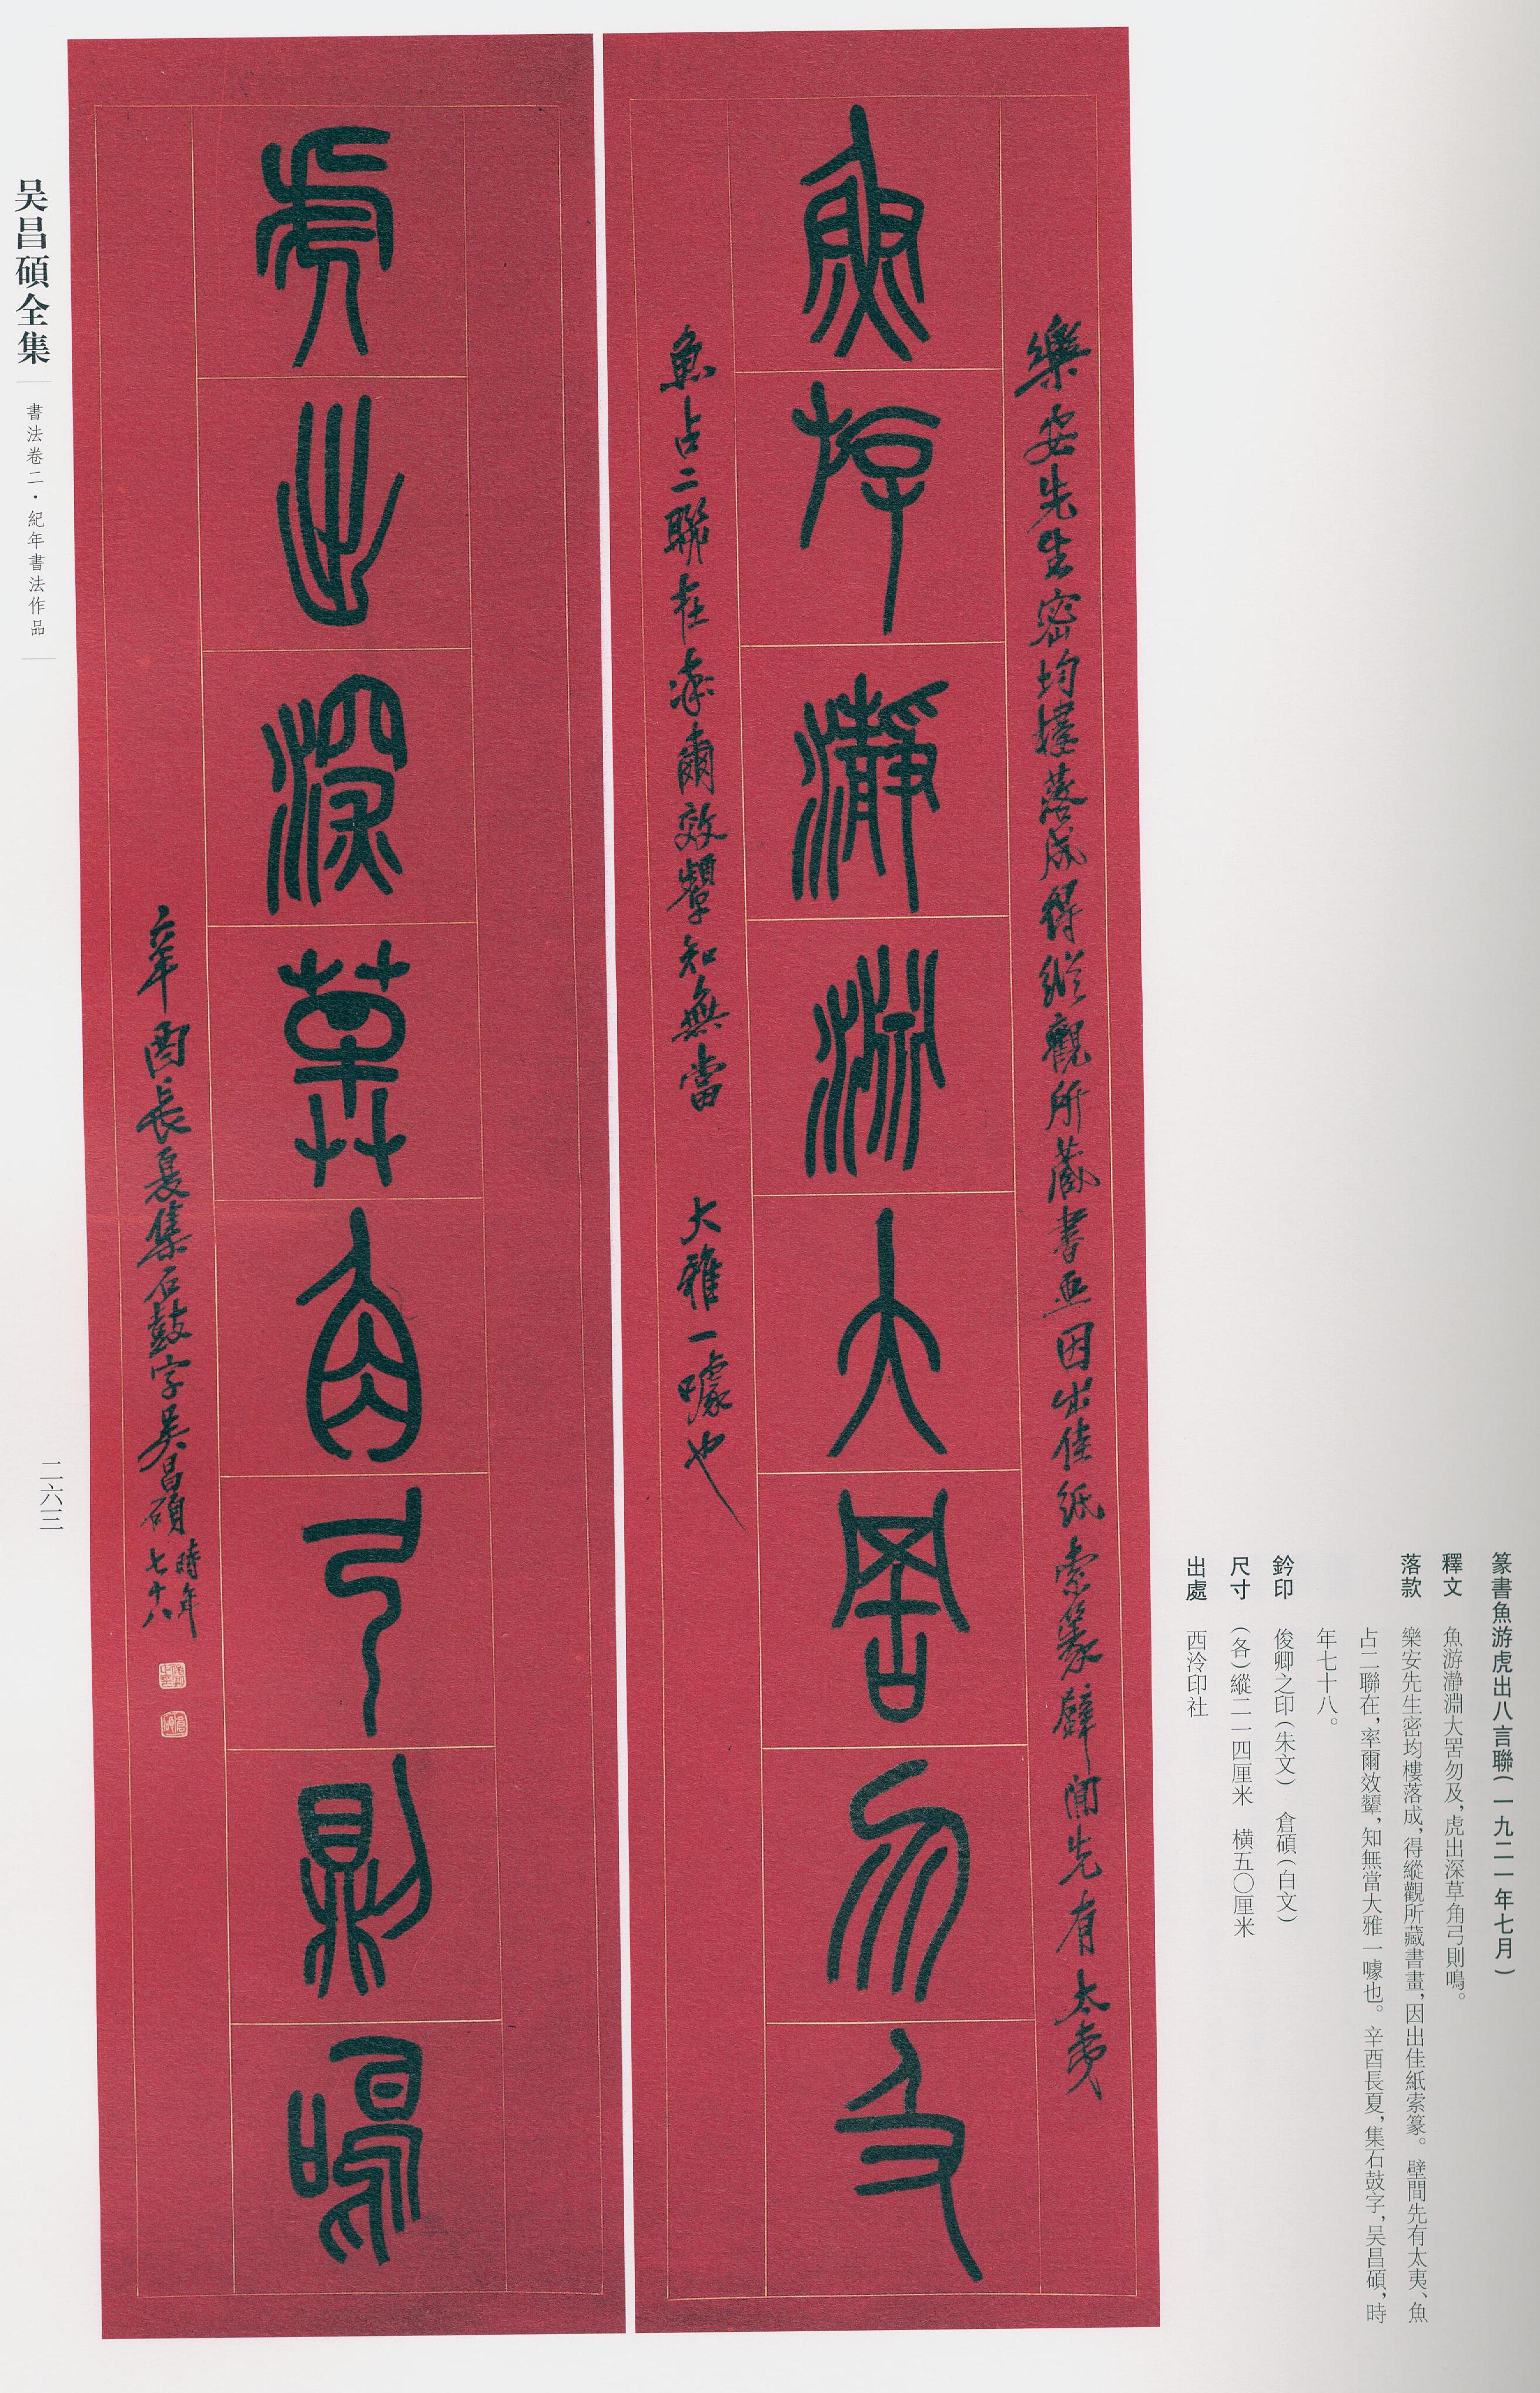 篆書魚游虎出八言聯(一九二一年七月)
釋文 魚游瀞淵大罟勿及,虎出深草角弓則鳴。
落款 樂安先生密均樓落成,得縱觀所藏書畫,因出佳紙索篆。壁間先有太夷、魚
占二聯在,率爾效顰,知無當大雅一噱也。辛酉長夏,集石鼓字,吴昌碩,時
年七十八。
鈐印 俊卿之印(朱文) 倉碩(白文)
尺寸 (各)縱二一四厘米 橫五〇厘米
出處 西泠印社
樂安先生密均樓落成得縱觀所藏書画因出佳紙索篆壁間先有太夷
魚游瀞淵大罟勿及
魚占二聯在率爾效顰知無當 大雅一噱也
虎出深草角弓則鳴
辛酉長夏集石鼓字吴昌碩時年七十八
俊卿之印
倉碩
吴昌碩全集
書法卷二·紀年書法作品
二六三